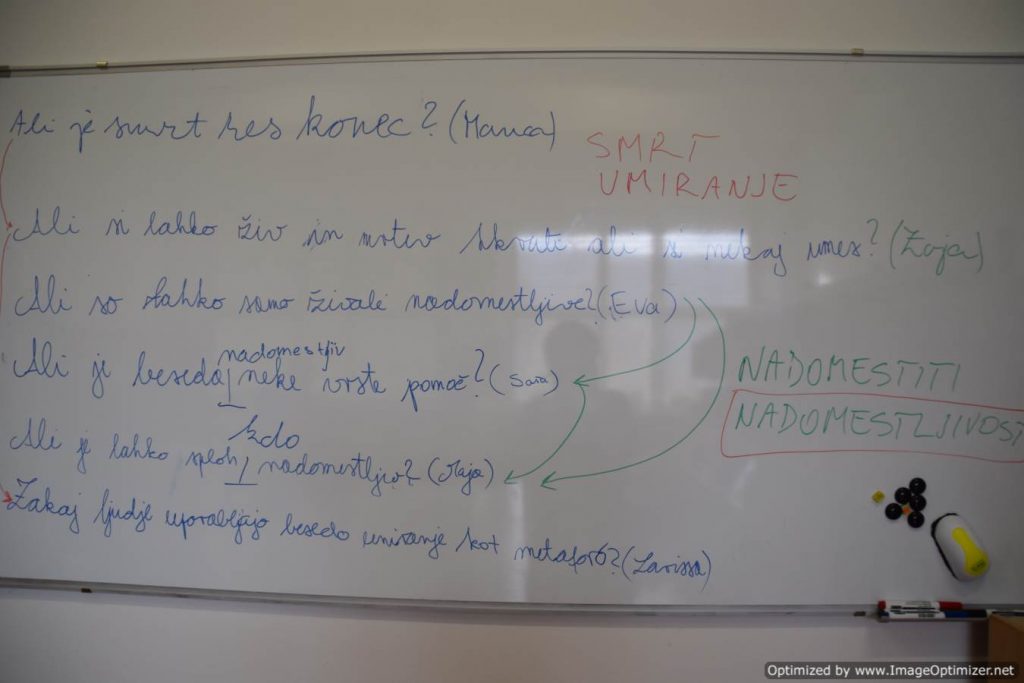 Ali je smrt res konec? (Manca)
SMRT
UMIRANJE
Ali si lahko živ in mrtev hkrati ali si nekaj vmes? (Zoja)
Ali so lahko samo živali nadomestljive? (Eva)
Ali je beseda nadomestljiv neke vrste pomoč? (Sara)
NADOMESTITI
NADOMESTLJIVOST
Ali je lahko sploh kdo nadomestljiv? (Maja)
Zakaj ljudje uporabljajo besedo umiranje kot metaforo? (Larissa)
Optimized by www.ImageOptimizer.net